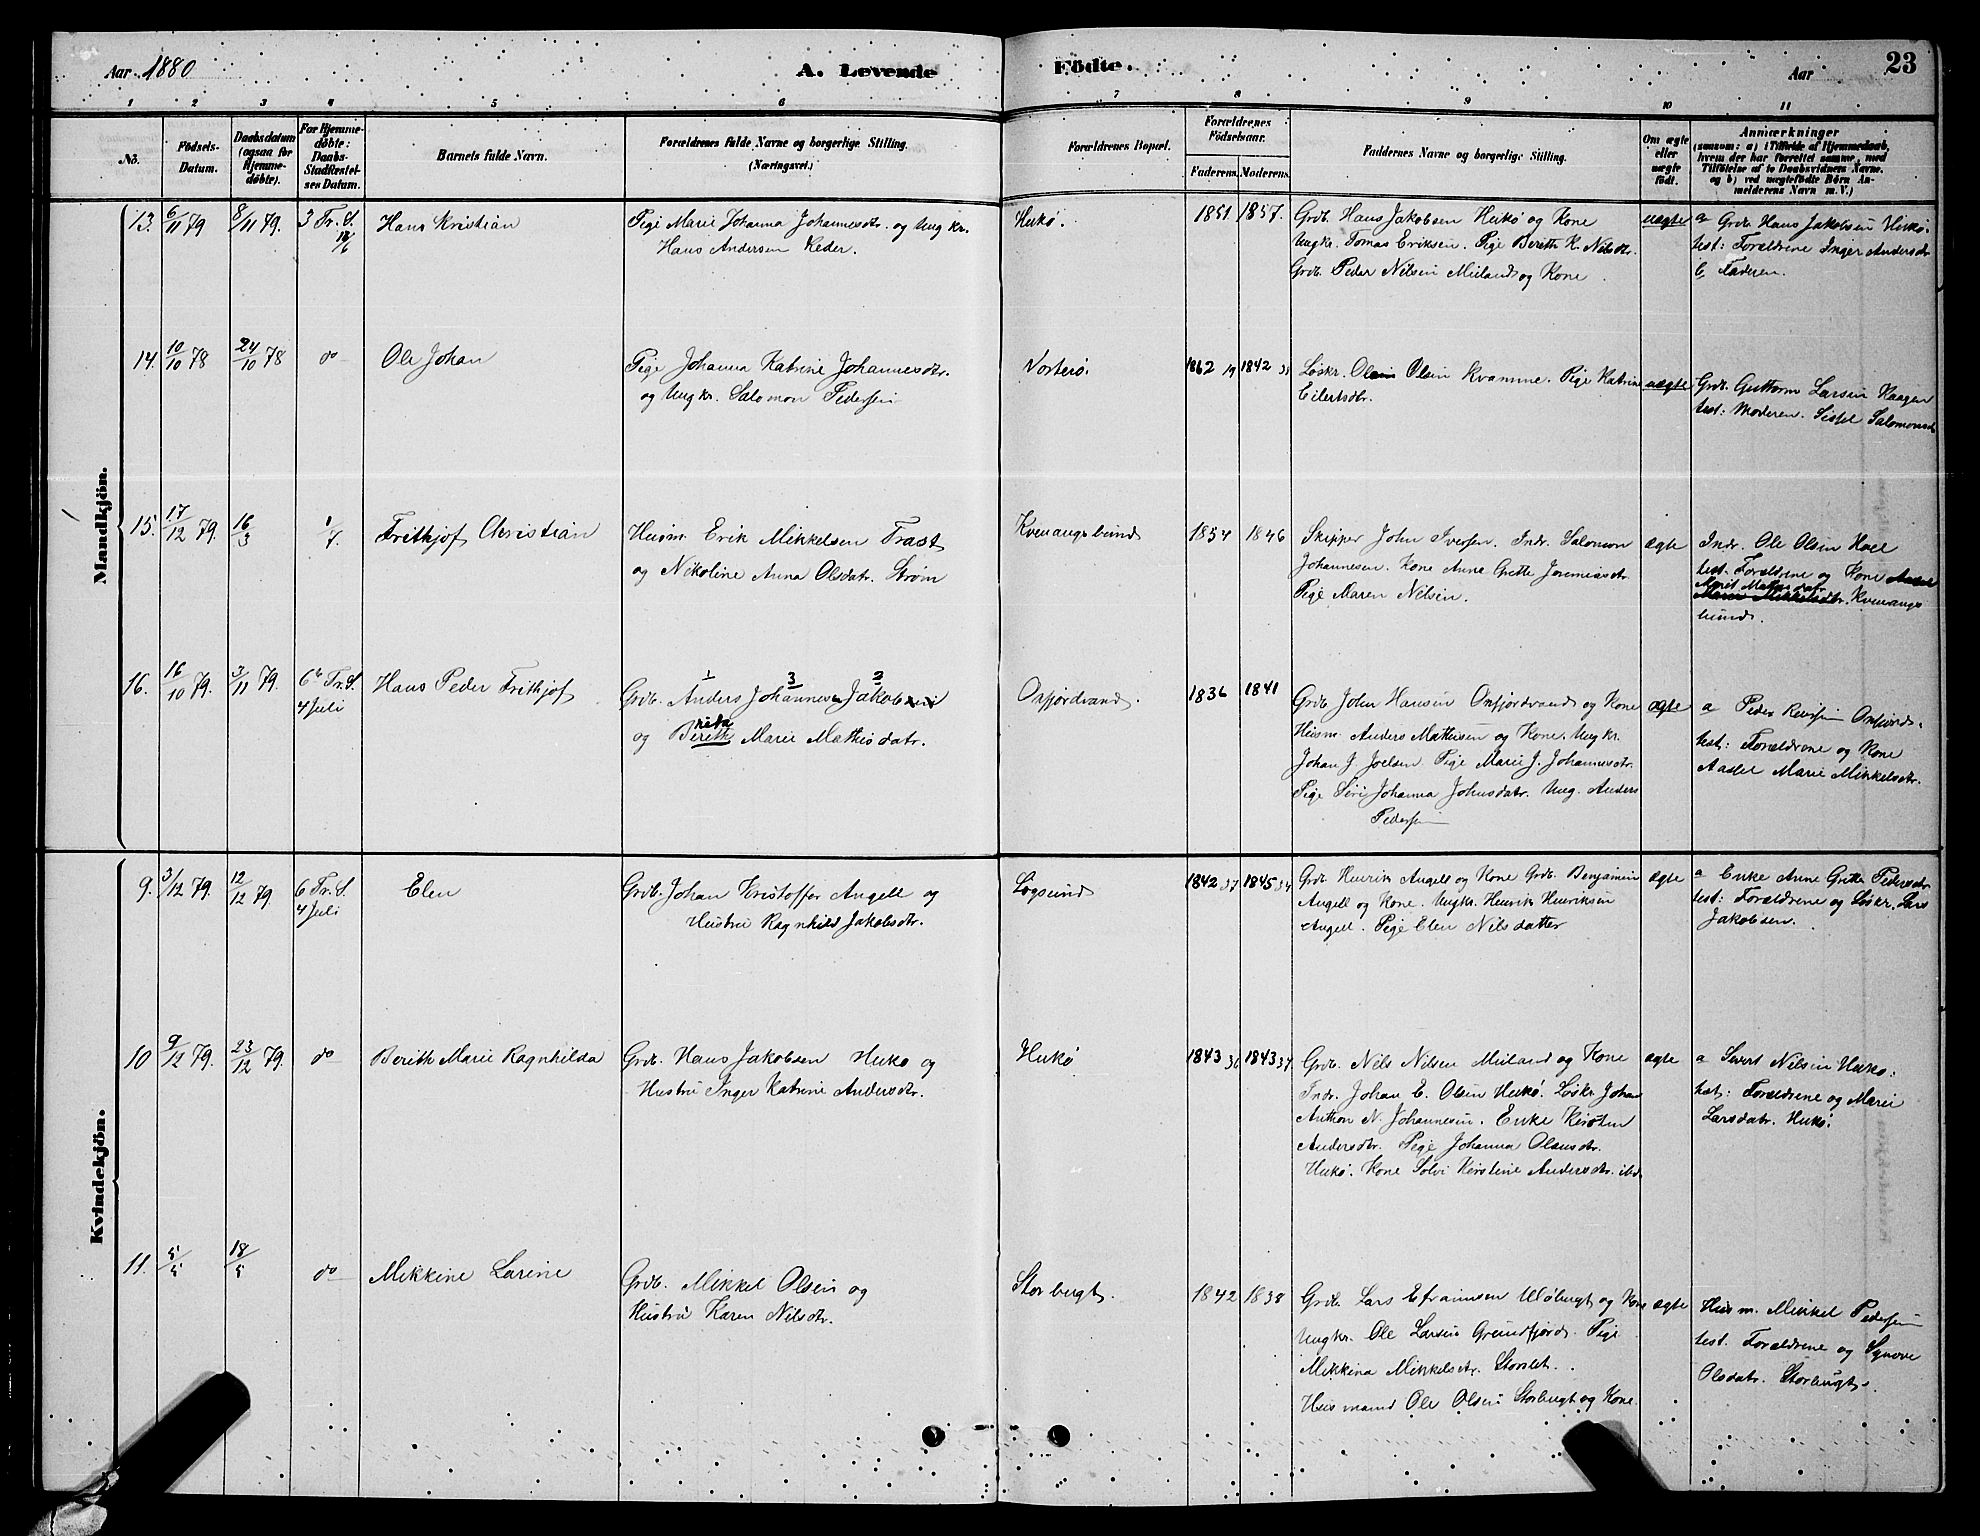 Aar 1880
A. Levende
Födte.
Aar
23
1 2 3 4 5 6 7 8 9 10 11
No.
Födsels-
Datum.
Daabsdatum
(ogsaa for
Hjemme-
døbte).
For Hjemme-
døbte:
Daabs-
Stadfæstel-
ses Datum.
Barnets fulde Navn.
Forældrenes fulde Navne og borgerlige Stilling.
(Næringsvei.)
Forældrenes Bopæl.
Forældrenes
Födselsaar.
Faderens. Moderens.
Faddernes Navne og borgerlige Stilling.
Om ægte
eller
uægte
födt.
Anmærkninger
(saasom: a) i Tilfælde af Hjemmedaab,
hvem der har forrettet samme, med
Tilföielse af to Daabsvidners Navne.
og b) ved uægtefödte Börn An-
melderens Navn m. V.)
Mandkjön.
13. 6/11 79 8/11 79. 3 Tr. S.
Hans Kristian
Pige Marie Johanna Johannesdtr. og Ungkr.
Hans Andersen Keder.
Hukö.
1851 1857.
Grdb. Hans Jakobsen Hukö og Kone
Ungkr. Tomas Eriksen. Pige Berith K. Nilsdtr.
Grdb. Peder Nilsen Meiland og Kone
uægte
a Grdb. Hans Jakobsen Hukö.
test: Forældrene Inger Andersdtr
b Faderen.
14. 10/10 78 24/10 78 do
Ole Johan
Pige Johanna Katrine Johannesdtr.
og Ungkr. Salomon Pedersen
Norterö.
1862 19 1842
Løskr. Olsen Kvamme. Pige Katrine
Eilertsdtr.
uægte
Grdb. Guttorm Larsen Haagen
test: Moderen. Sissel Salomonsdtr
15. 17/12 79. 16/3 1/7.
Frithjof Christian
Husm. Erik Mikkelsen Trast
og Nikoline Anna Olsdatr. Strøm
Kvenangsbund
1854 1846
Skipper John Iversen. Indr. Salomon
Johannesen. Kone Anne Grethe Jeremiasdtr.
Pige Maren Nilsen.
ægte
Indr. Ole Olsen Hoel
test. Forældrene og Kone
Marit Matisdatr.
Kvenangs
bund.
16. 16/10 79. 3/11 79. 6te Tr. S.
4 Juli
Hans Peder Frithjof
1 3 2
Grdb. Anders Johannes Jakobsen
og Berith Marie Mathisdatr.
Oxfjordvand.
1836 1841
Grdb. John Hansen Oxfjordvand og Kone
Husm. Anders Mathisen og Kone. Ungkr.
Johan J. Joelsen Pige Marie J. Johannesdtr.
Pige Siri Johanna Johnsdatr. Ung. Anders
Pedersen
ægte
a Peder Oxfjord.
test: Forældrene og Kone
Aasel Marie Mikkelsdtr.
Kvindekjön.
9. 3/12 79. 12/12 79. 6 Tr. S.
4 Juli
Elen
Grdb. Johan Kristoffer Angell og
Hustru Ragnhild Jakobsdtr.
Løgsund
1842 37 1845 34
Grdb Henrik Angell og Kone Grdb. Benjamin
Angell og Kone. Ungkr. Henrik Henriksen
Angell. Pige Elen Nilsdatter
ægte
a Enke Anne Grethe Pedersdtr
test: Forældrene og Løskr. Lars
Jakobsen.
10 9/12 79. 23/12 79. do
Berith Marie Ragnhilda
Grdb. Hans Jakobsen Hukö og
Hustru Inger Katrine Andersdtr.
Hukö
1843 36 1843
Grdb. Nils Nilsen Meiland og Kone
Indr. Johan E. Olsen Hukö. Løskr Johan
Anthon N. Johannesen. Enke Kirsten
Andersdtr. Pige Johanna Olausdtr.
Hukö. Kone Solvi Kirstine Andersdtr. ibd.
ægte
a Sivert Nilsen Hukö:
test: Forældrene og Marie
Larsdatr. Hukö.
11. 5/5 18/5 do
Mikkine Larine
Grdb. Mikkel Olsen og
Hustru Karen Nilsdtr.
Storbugt.
1842 1838
Grdb. Lars Efraimsen og Kone
Ungkr. Ole Larsen Grundfjord. Pige
Mikkina Mikkelsdtr. Storslet.
Husmand Ole Olsen Storbugt og Kone
ægte
Husm. Mikkel Pedersen
test. Forældrene og Synove
Olsdatr. Storbugt.